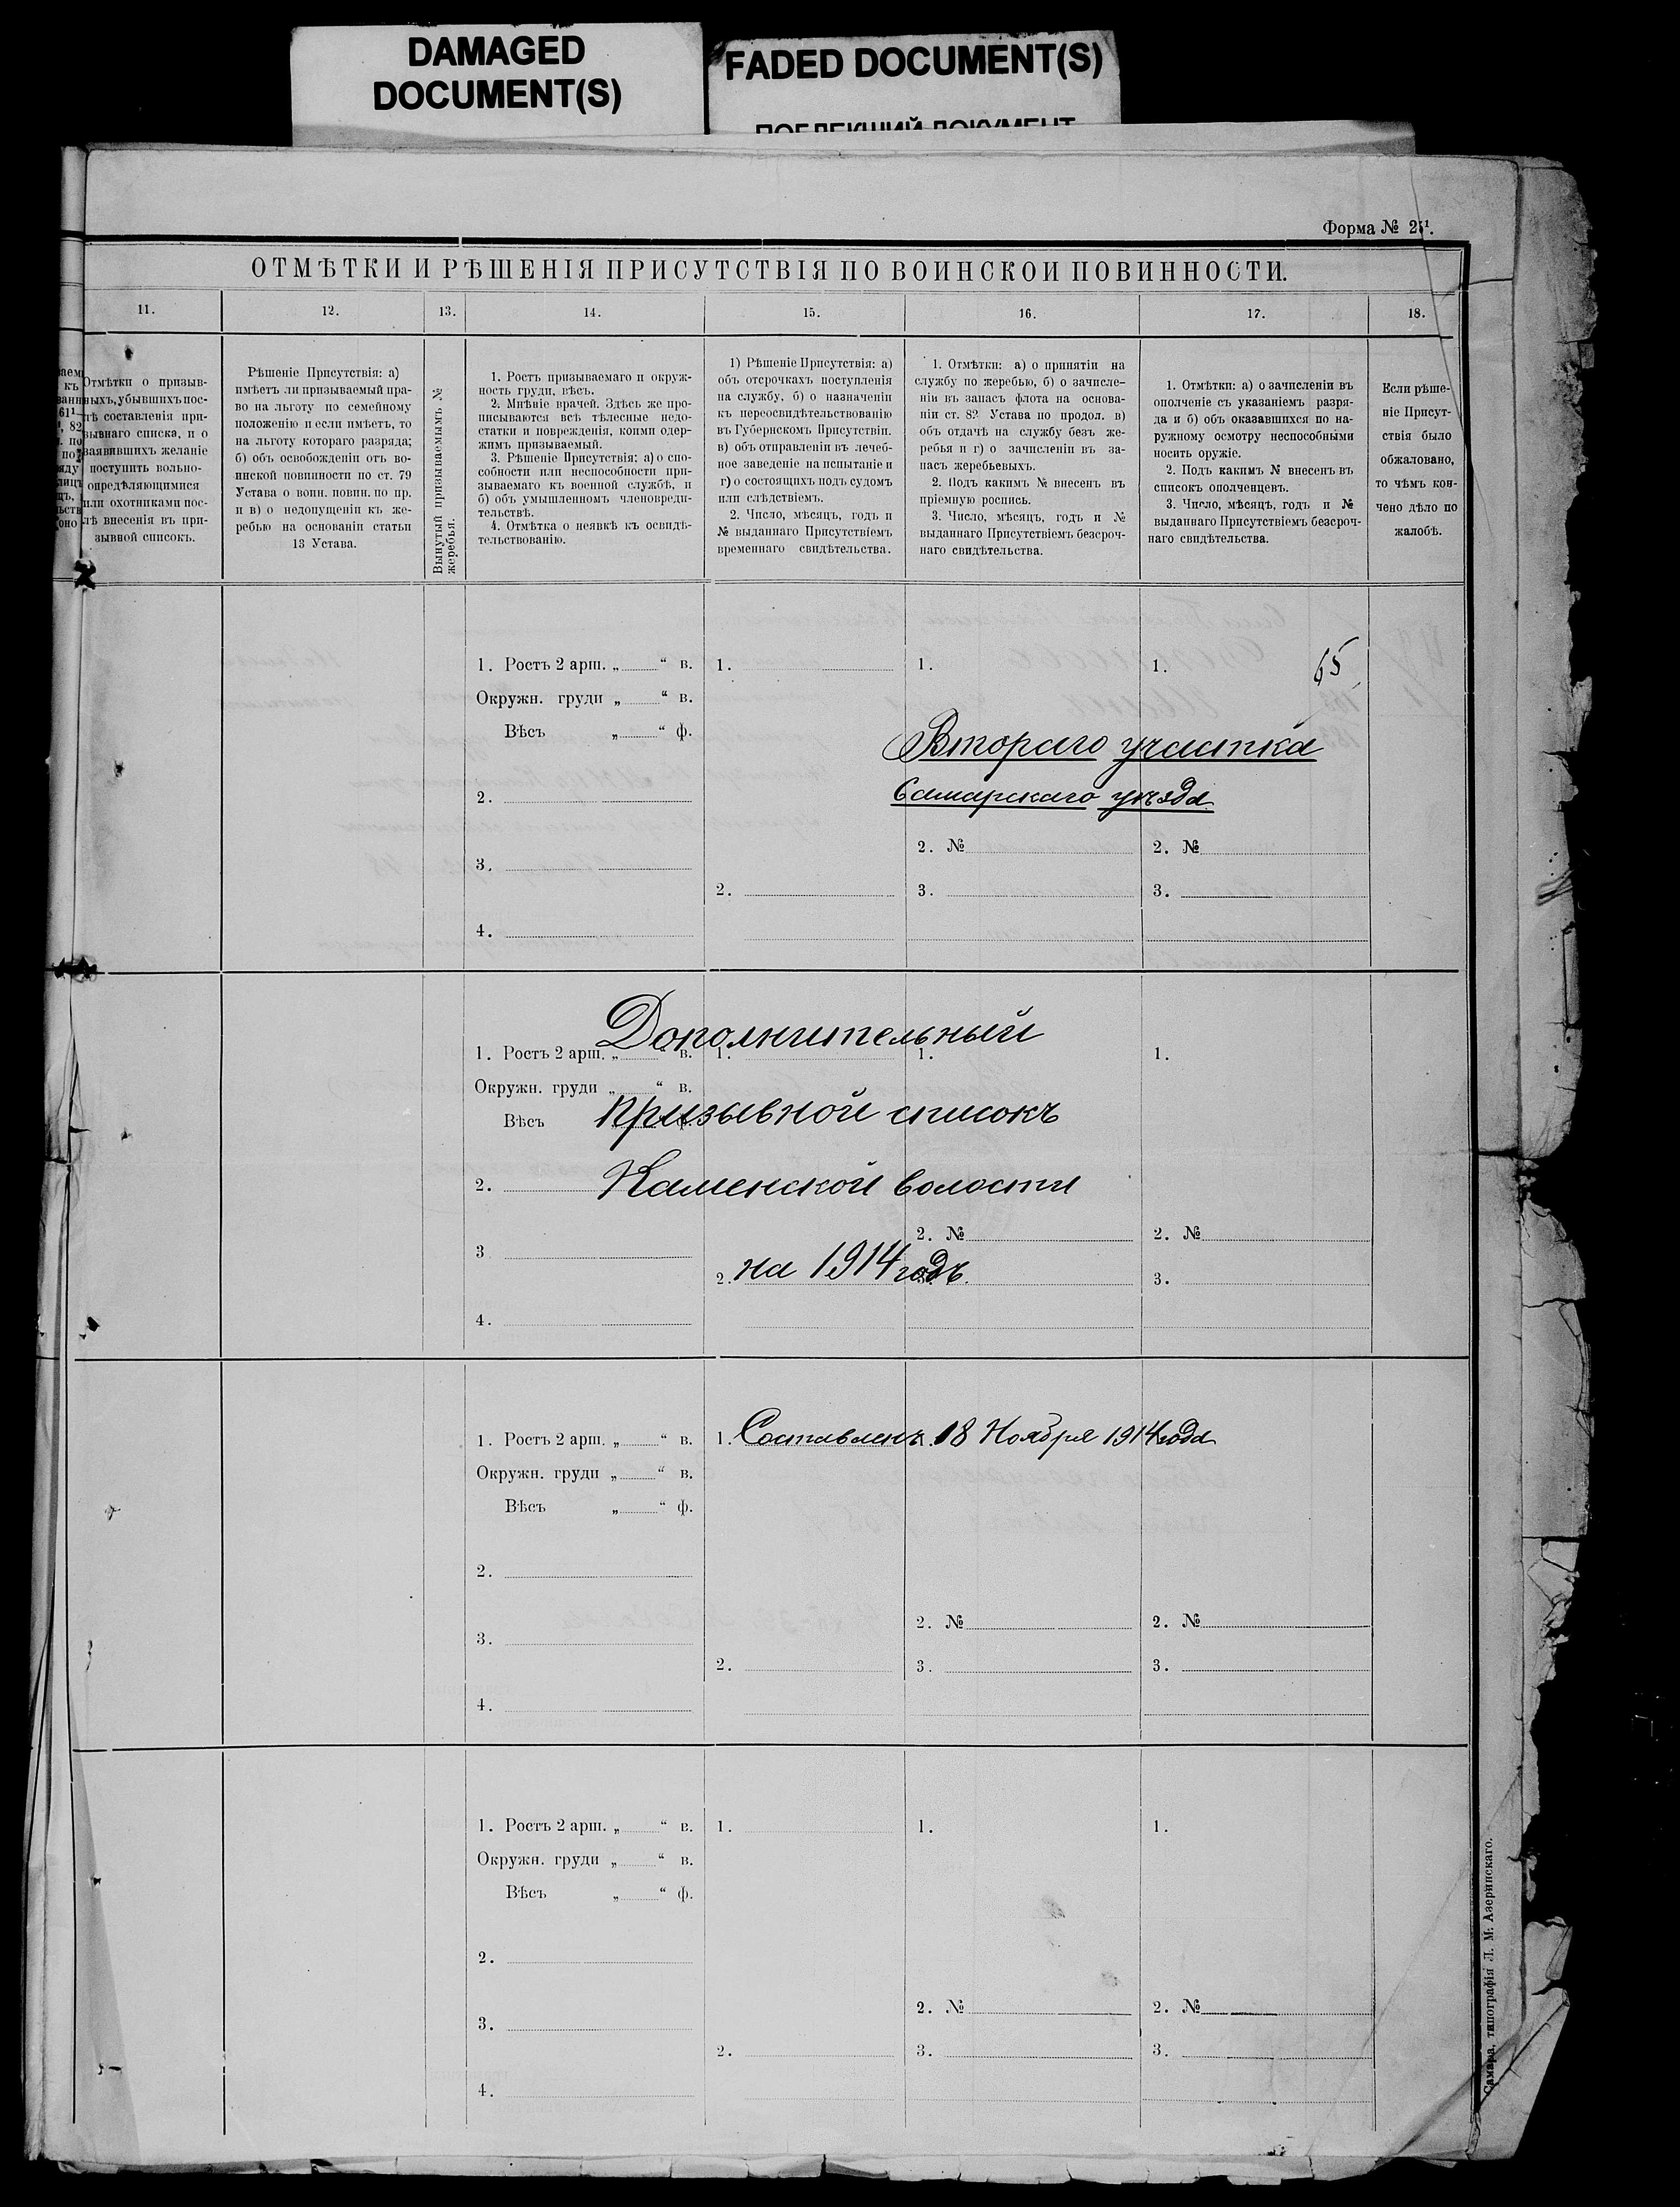 DAMAGED
DOCUMENT(S)
FADED DOCUMENT(S)
ПОБЛЕКШИЙ ДОКУМЕНТ
Форма №
ОТМѢТКИ И РѢШЕНІЯ ПРИСУТСТВІЯ ПО ВОИНСКОИ ПОВИННОСТИ.
11.
12.
13.
14.
15.
16.
17.
18.
Отмѣтки о призыв-
ныхъ, убывшихъ пос-
лѣ составленія при-
зывнаго списка, и о
заявившихъ желаніе
поступить вольно-
опредѣляющимися
или охотниками пос-
лѣ внесенія въ при-
зывной списокъ.
Рѣшеніе Присутствія: а)
имѣетъ ли призываемый пра-
во на льготу по семейному
положенію и если имѣетъ, то
на льготу котораго разряда;
б) объ освобожденіи отъ во-
инской повинности по ст. 79
Устава о воин. повин. по пр.
и в) о недопущеніи къ же-
ребью на основаніи статьи
13 Устава.
Вынутый призываемымъ №
жеребья.
1. Ростъ призываемаго и окруж-
ность груди, вѣсъ.
2. Мнѣніе врачей. Здѣсь же про-
писываются всѣ тѣлесные недо-
статки и поврежденія, коими одер-
жимъ призываемый.
3. Рѣшеніе Присутствія: а) о спо-
собности или неспособности при-
зываемаго къ военной службѣ, и
б) объ умышленномъ членовреди-
тельствѣ.
4. Отмѣтка о неявкѣ къ освидѣ-
тельствованію.
1) Рѣшеніе Присутствія: а)
объ отсрочкахъ поступленія
на службу, б) о назначеніи
къ переосвидѣтельствованію
въ Губернскомъ Присутствіи.
в) объ отправленіи въ лечеб-
ное заведеніе на испытаніе и
г) о состоящихъ подъ судомъ
или слѣдствіемъ.
2. Число, мѣсяцъ, годъ и
№ выданнаго Присутствіемъ
временнаго свидѣтельства.
1. Отмѣтки: а) о принятіи на
службу по жеребью, б) о зачисле-
ніи въ запасъ флота на основа-
ніи ст. 82 Устава по продол. в)
объ отдачѣ на службу безъ же-
ребья и г) о зачисленіи въ за-
пасъ жеребьевыхъ.
2. Подъ какимъ № внесенъ въ
пріемную роспись.
3. Число, мѣсяцъ, годъ и №
выданнаго Присутствіемъ безсроч-
наго свидѣтельства.
1. Отмѣтки: а) о зачисленіи въ
ополченіе съ указаніемъ разря-
да и б) объ оказавшихся по на-
ружному осмотру неспособными
носить оружіе.
2. Подъ какимъ № внесенъ въ
списокъ ополченцевъ.
3. Число, мѣсяцъ, годъ и №
выданнаго Присутствіемъ безсроч-
наго свидѣтельства.
Если рѣше-
ніе Присут-
ствія было
обжаловано,
то чѣмъ кон-
чено дѣло по
жалобѣ.
1. Ростъ 2 арш. „ “ в. 1. 1. 1. 65
Окружн. груди „ “ в.
Вѣсъ „ “ ф.
Второго участка
2. Самарскаго уѣзда
2. № 2. №
3.
2. 3. 3.
4.
Дополнительный
1. Ростъ 2 арш. „ “ в. 1. 1. 1.
Окружн. груди „ “ в.
Вѣсъ „ “ ф. призывной списокъ
2. Каменской волости
2. № 2. №
3
2. на 1914 годъ. 3.
4.
1. Ростъ 2 арш. „ “ в. 1. Составленъ 18 Ноября 1914 года
Окружн. груди „ “ в.
Вѣсъ „ “ ф.
2.
2. № 2. №
3.
2. 3. 3.
4.
1. Ростъ 2 арш. „ “ в. 1. 1. 1.
Окружн. груди „ “ в.
Вѣсъ „ “ ф.
2.
2. № 2. №
3.
2. 3. 3.
4.
Самара, типографія Л. М. Азеринскаго.